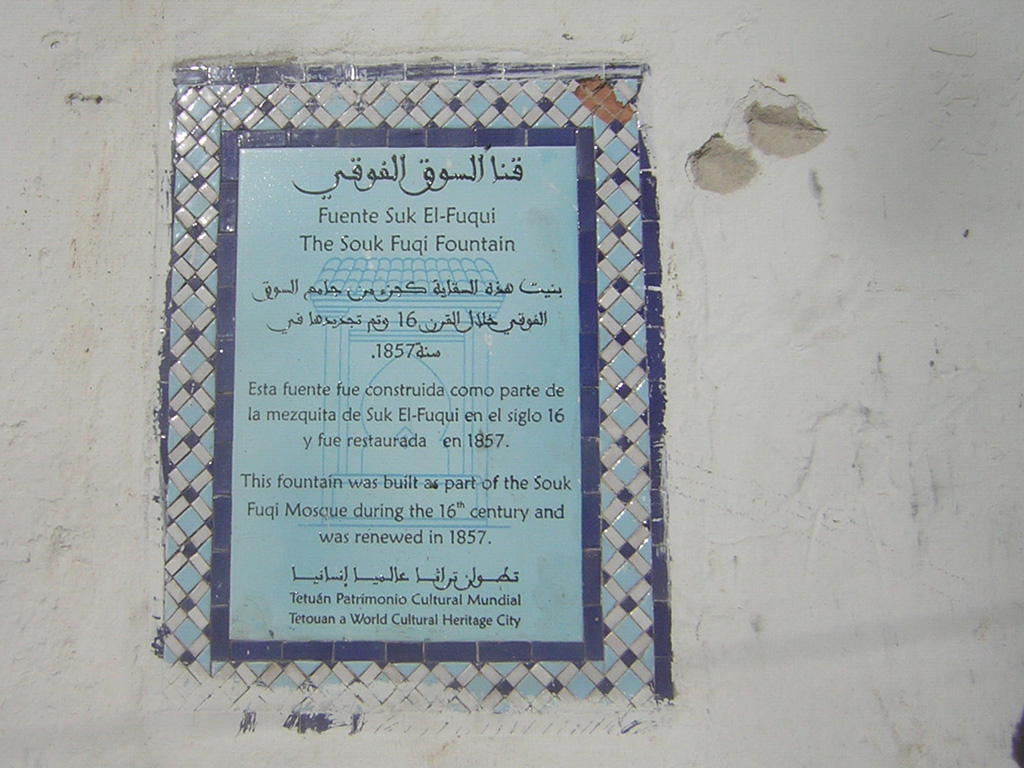 قنا السوق الفوقي
Fuente Suk El-Fuqui
The Souk Fuqi Fountain
بنيت هذه السقاية كجزء من جامع السوق
الفوقي خلال القرن 16 وتم تجديدها في
سنة 1857.
Esta fuente fue construida como parte de
la mezquita de Suk El-Fuqui en el siglo 16
y fue restaurada en 1857.
This fountain was built as part of the Souk
Fuqi Mosque during the 16th century and
was renewed in 1857.
تطوان تراثا عالميا إنسانيا
Tetuán Patrimonio Cultural Mundial
Tetouan a World Cultural Heritage City